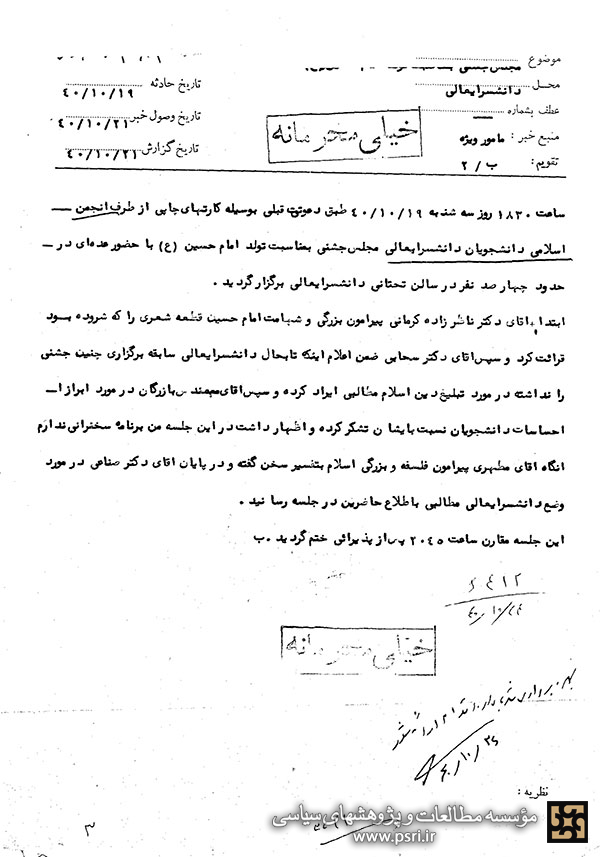 موضوع : مجلس جشنی بمناسبت تولد امام
محل : دانشسرایعالی
تاریخ حادثه ۴۰/۱۰/۱۹
عطف بشماره : —
تاریخ وصول خبر ۴۰/۱۰/۲۱
منبع خبر : مامور ویژه
تاریخ گزارش ۴۰/۱۰/۲۱
تقویم : ب / ۲
خیلی محرمانه
ساعت ۱۸۳۰ روز سه شنبه ۴۰/۱۰/۱۹ طبق دعوت قبلی بوسیله کارتهای چاپی از طرف انجمن
اسلامی دانشجویان دانشسرایعالی مجلس جشنی بمناسبت تولد امام حسین (ع) با حضور عده‌ای در
حدود چهار صد نفر در سالن تحتانی دانشسرایعالی برگزار گردید .
ابتدا آقای دکتر ناظر زاده کرمانی پیرامون بزرگی و شهامت امام حسین قطعه شعری را که سروده بود
قرائت کرد و سپس آقای دکتر سحابی ضمن اعلام اینکه تابحال دانشسرایعالی سابقه برگزاری چنین جشنی
را نداشته در مورد تبلیغ دین اسلام مطالبی ایراد کرده و سپس آقای مهندس بازرگان در مورد ابراز
احساسات دانشجویان نسبت بایشان تشکر کرده و اظهار داشت در این جلسه من برنامه سخنرانی ندارم
آنگاه آقای مطهری پیرامون فلسفه و بزرگی اسلام بتفسیر سخن گفته و در پایان آقای دکتر صناعی در مورد
وضع دانشسرایعالی مطالبی باطلاع حاضرین در جلسه رسانید .
این جلسه مقارن ساعت ۲۰۴۵ پس از پذیرائی ختم گردید . ب
۴۰/۱۰/۲۴
خیلی محرمانه
۴۰/۱۰/۲۴
نظریه :
۳
مؤسسه مطالعات و پژوهشهای سیاسی
www.psri.ir